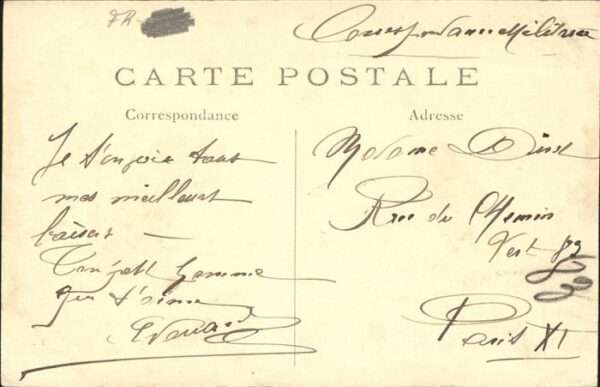 FR-
Correspondance Militaire
CARTE POSTALE
Correspondance
Adresse
Je t'envoie tous
mes meilleurs
baisers —
Ton petit homme
qui t'aime
Edouard
Madame
Rue du Chemin
Vert 83
Paris XI